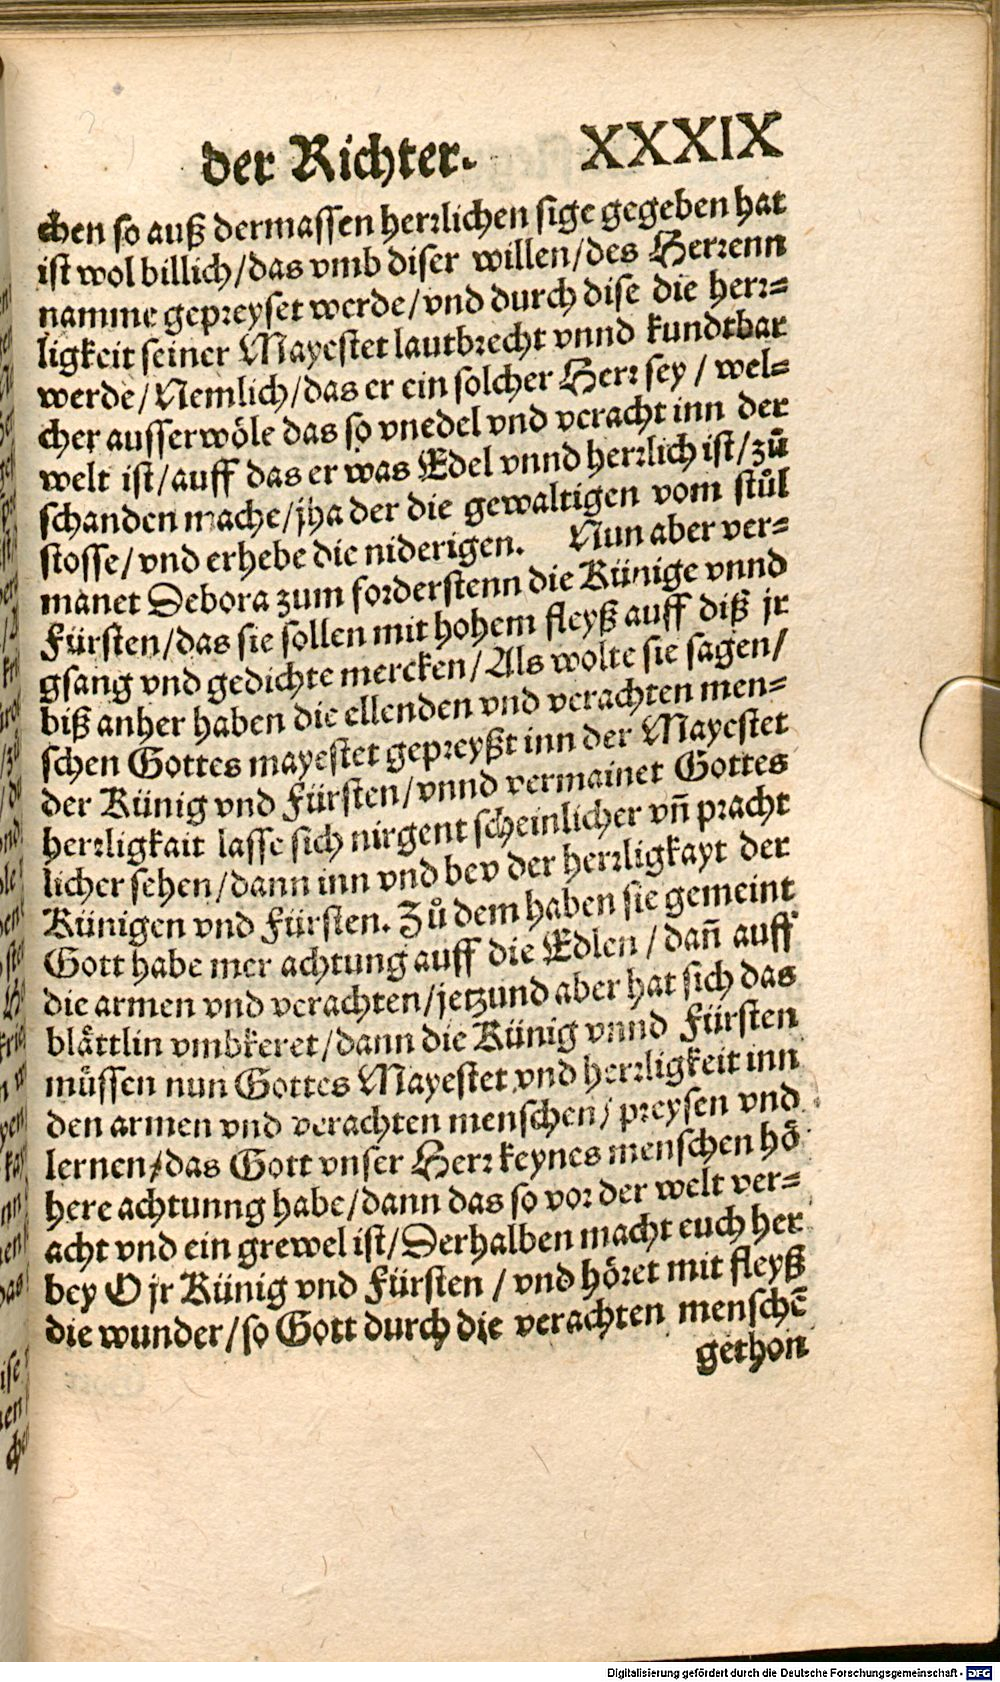 der Richter. XXXIX
chen so auß dermassen herꝛlichen sige gegeben hat
ist wol billich/das vmb diser willen/des Herꝛenn
namme gepꝛeyset werde/vnd durch dise die herꝛ⸗
ligkeit seiner Mayestet lautbꝛecht vnnd kundtbar
werde/Nemlich/das er ein solcher Herꝛ sey / wel⸗
cher ausserwöle das so vnedel vnd veracht inn der
welt ist/auff das er was Edel vnnd herꝛlich ist/zuͦ
schanden mache/jha der die gewaltigen vom stuͦl
stosse/vnd erhebe die niderigen. Nun aber ver⸗
manet Debora zum foꝛderstenn die Künige vnnd
Fürsten/das sie sollen mit hohem fleyß auff diß jr
gsang vnd gedichte mercken/Als wolte sie sagen/
biß anher haben die ellenden vnd verachten men⸗
schen Gottes mayestet gepꝛeyßt inn der Mayestet
der Künig vnd Fürsten/vnnd vermainet Gottes
herꝛligkait lasse sich nirgent scheinlicher vñ pꝛacht
licher sehen/dann inn vnd bey der herꝛligkayt der
Künigen vnd Fürsten. Zuͦ dem haben sie gemeint
Gott habe mer achtung auff die Edlen / dañ auff
die armen vnd verachten/jetzund aber hat sich das
blaͤttlin vmbkeret/dann die Künig vnnd Fürsten
müssen nun Gottes Mayestet vnd herꝛligkeit inn
den armen vnd verachten menschen/ pꝛeysen vnd
lernen/das Gott vnser Herꝛ keynes menschen hoͤ
here achtunng habe/dann das so voꝛ der welt ver⸗
acht vnd ein grewel ist/Derhalben macht euch her
bey O jr Künig vnd Fürsten / vnd höꝛet mit fleyß
die wunder/so Gott durch die verachten menschẽ
gethon
Digitalisierung gefördert durch die Deutsche Forschungsgemeinschaft - DFG